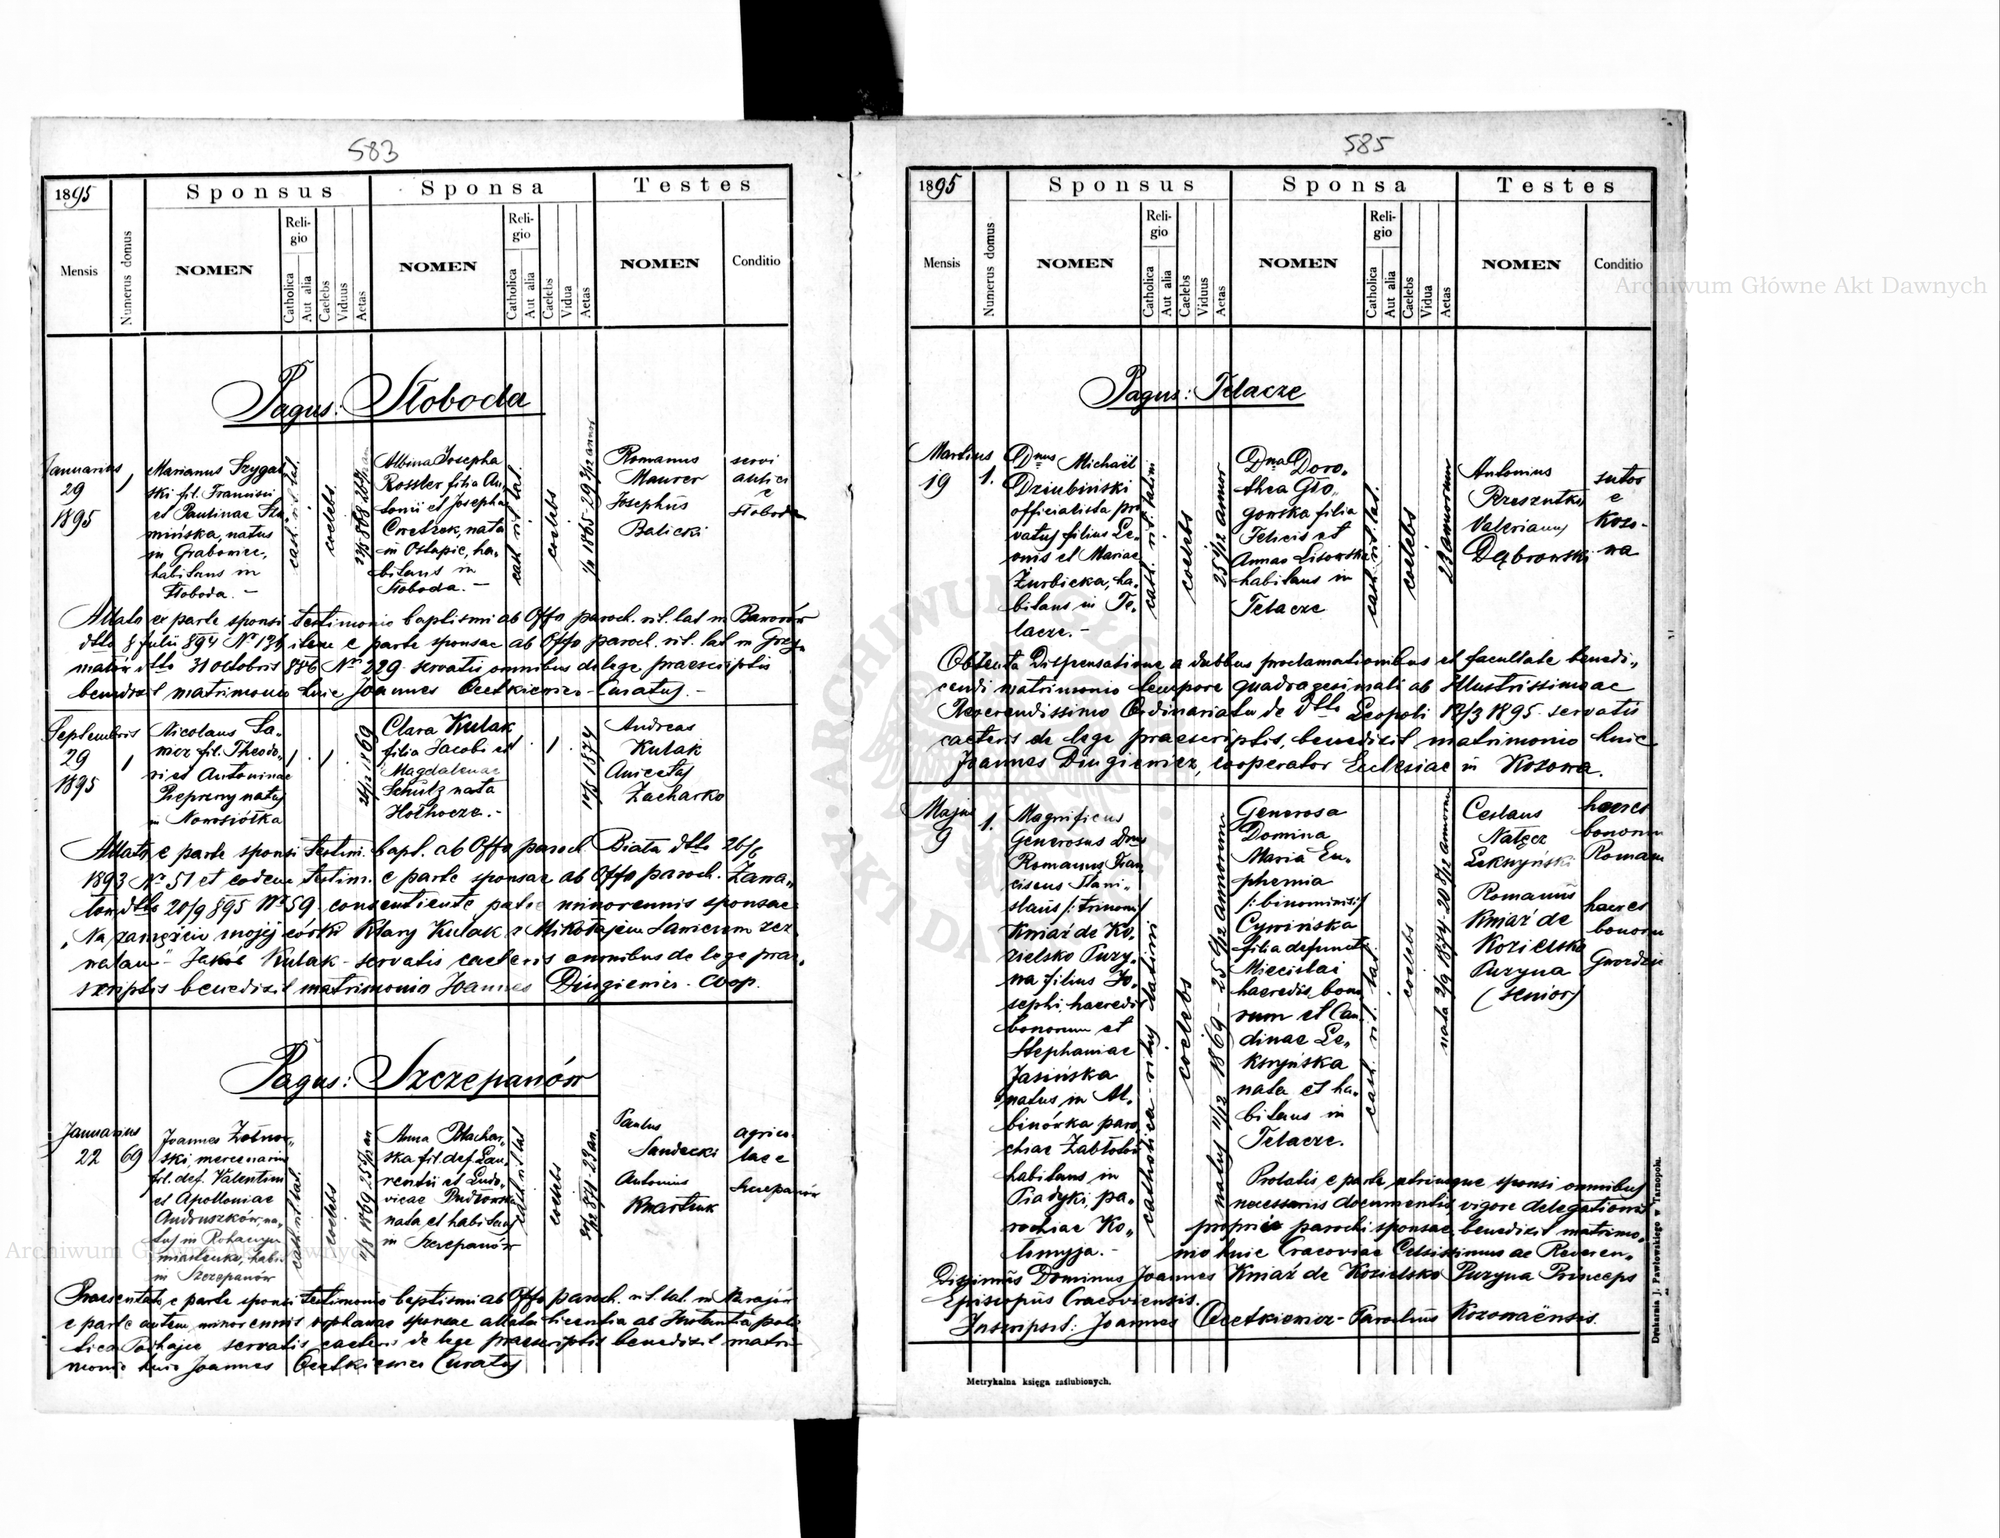 583
1895
Sponsus
Sponsa
Testes
Mensis
Numerus domus
NOMEN
Reli-
gio
Catholica
Aut alia
Caelebs
Viduus
Aetas
NOMEN
Reli-
gio
Catholica
Aut alia
Caelebs
Vidua
Aetas
NOMEN
Conditio
Pagus: Słoboda
Januarius
29
1895
1
Marianus Szygal
ski fil. Francisci
et Paulinae
mińska, natus
in Grabowiec,
habitans in
Słoboda. -
cath. rit. lat.
coelebs
Albina Josepha
Rossler filia An
tonii et Josepha
nata
in Ostapie, ha-
bitans in
Słoboda. -
cath. rit. lat.
coelebs
Romanus
Maurer
Josephus
Balicki
servi
aulici
e
Słoboda
Allato ex parte sponsi testimonio baptismi ab Offo paroch. rit. lat. in Baworów
dtto 8 Julii 894 No 136, item e parte sponsae ab Offo paroch. rit. lat. in Grzy-
małów dtto 31 octobris 886 No 229. servatis omnibus de lege praescriptis
benedixit matrimonio huic Joannes Ocetkiewicz - Curatus. -
Septembris
29
1895
1
Nicolaus Sa-
nicz fil. Theodo-
ri et Antoninae
natus
in Nowosiółka
26/12 1869
Clara Kulak
filia Jacobi et
Magdalenae
Schulz nata
Hołhocze. -
1874
Andreas
Kulak
Anicetus
Zacharko
Allato e parte sponsi testim. bapt. ab Offo paroch. Biała dtto 26/6
1893 No 51 et eodem testim. e parte sponsae ab Offo paroch. Zawa-
łów dtto 20/9 895 No 59 consentiente patre minorennis sponsae
"Na zamężcie mojej córki Klary Kulak z Mikołajem Saniczem zez-
walam" - Jakób Kulak - servatis caeteris omnibus de lege prae-
scriptis benedixit matrimonio Joannes Dingiewicz. Coop.
Pagus: Szczepanów
Januarius
22
69
Joannes Żołnow-
ski, mercenarius
fil. def. Valentini
et Apolloniae
Andruszków, na-
tus in Rohaczyn
miasteczko, habi-
in Szczepanów
cath. rit. lat.
coelebs
Anna Blachar-
ska fil. def. Lau-
rentii et Ludo-
vicae
nata et habitans
in Szczepanów
cath. rit. lat
coelebs
Paulus
Sandecki
Antonius
Kwartiuk
agrico-
lae e
Szczepanów
Praesentato e parte sponsi testimonio baptismi ab Offo paroch. rit. lat. in Narajów
e parte autem minorennis orphanae sponsae allata licentia ab Instantia poli-
tica Podhajce servatis caeteris de lege praescriptis benedixit matri-
monio huic Joannes Ocetkiewicz Curatus
585
1895
Sponsus
Sponsa
Testes
Mensis
Numerus domus
NOMEN
Reli-
gio
Catholica
Aut alia
Caelebs
Viduus
Aetas
NOMEN
Reli-
gio
Catholica
Aut alia
Caelebs
Vidua
Aetas
NOMEN
Conditio
Pagus: Telacze
Martius
19
1.
Dnus Michaël
Dziubiński
officialista pri
vatus filius Le-
onis et Mariae
Żurbicka, ha-
bitans in Te-
lacze. -
cath. rit. latini
coelebs
25 1/12 annor
Dna Doro-
thea Gło-
gowska filia
Felicis et
Annae Lisowska
habitans in
Telacze
cath. rit. lat.
coelebs
23 annorum
Antonius
Rzeszutko
Valerianus
Dąbrowski
sutor
e
Kozo-
wa
Obtenta Dispensatione a duabus proclamationibus et facultate benedi-
cendi matrimonio tempore quadragesimali ab Illustrissimo ac
Reverendissimo Ordinariatu de dtto Leopoli 13/3 1895. servatis
caeteris de lege praescriptis, benedixit matrimonio huic
Joannes Dingiewicz, cooperator Ecclesiae in Kozowa.
Majus
9
1.
Magnificus
Generosus Dnus
Romanus Fran-
ciscus Stani-
slaus /: trinomis/
Kniaź de Ko-
zielsko Puzy-
na filius Jo-
sephi, haeredis
bonorum et
Stephaniae
Jasińska
natus in Al-
binówka paro-
chiae Zabłotów
habitans in
Piadyki, pa-
rochiae Ko-
łomyja. -
catholica - ritus latini
coelebs
natus 11/12 1869 - 25 5/12 annorum
Generosa
Domina
Maria Eu-
phemia
/: binominis:/
Cywińska
filia defuncti
Miecislai
haeredis bono
rum et Can-
dinae Le-
kszyńska
nata et ha-
bitans in
Telacze.
cath. rit. lat.
coelebs
nata 2/9 1874 - 20 8/12 annorum
Ceslaus
Nałęcz
Lekszyński
Romanus
Kniaź de
Kozielsko
Puzyna
(senior)
haeres
bonorum
haeres
bonorum
Prolatis e parte utriusque sponsi omnibus
necessariis documentis, vigore delegationis
proprii parochi sponsae benedixit matrimo-
nio huic Cracoviae Celsissimus ac Reveren-
dissimus Dominus Joannes Kniaź de Kozielsko Puzyna Princeps
Episcopus Cracoviensis.
Inscripsit: Joannes Ocetkiewicz - Parochus Kozowaënsis.
Metrykalna księga zaślubionych.
Drukarnia J. Pawłowskiego w Tarnopolu.
Archiwum Główne Akt Dawnych
Archiwum Główne Akt Dawnych
ARCHIWUM GŁÓWNE AKT DAWNYCH